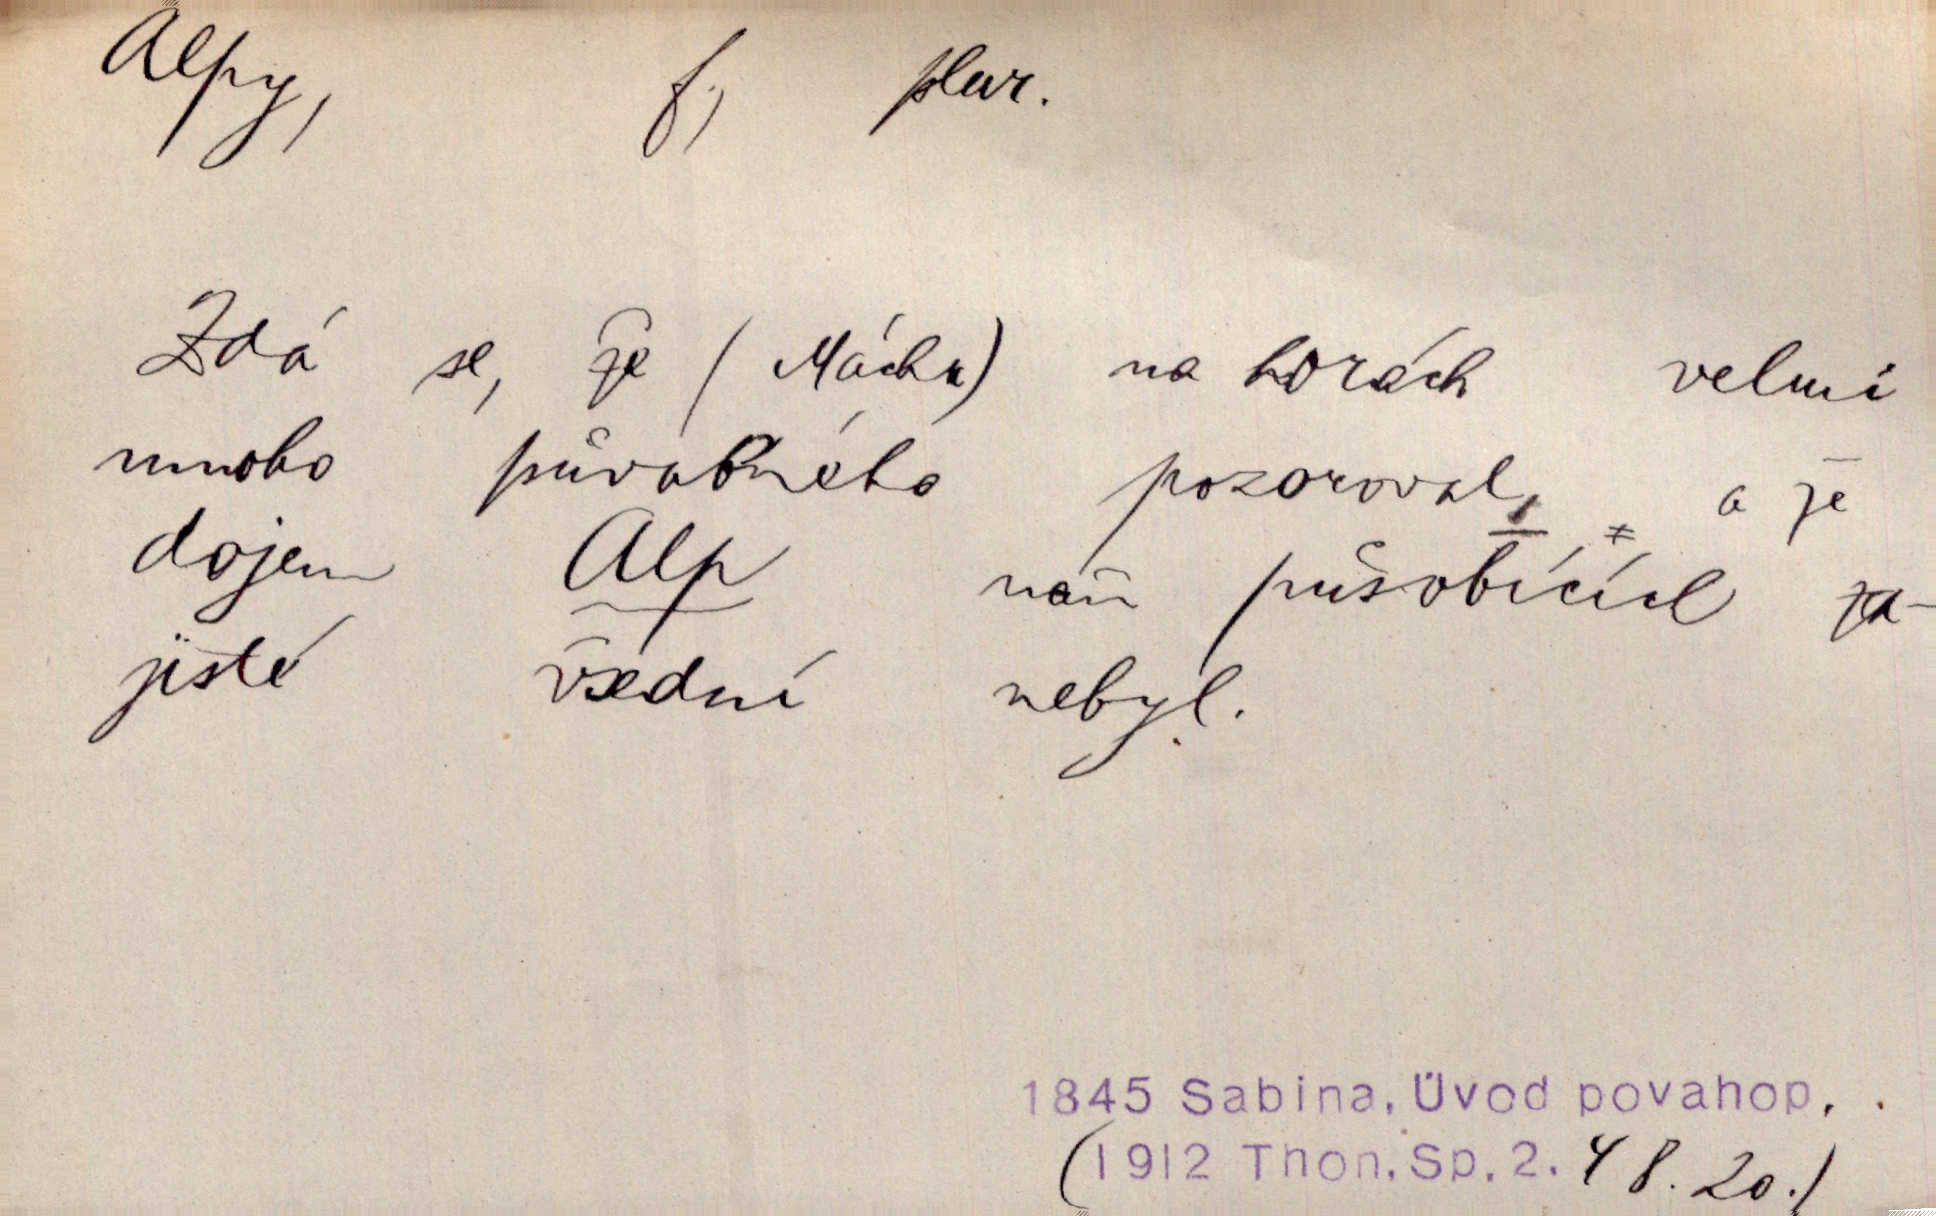 Alpy, f, plur.
Zdá se, že (Mácha) na horách velmi
mnoho půvabného pozoroval, a že
dojem Alp naň působících za-
jisté všední nebyl.
1845 Sabina, Úvod povahop. .
(1912 Thon. Sp. 2. 48. 20.)